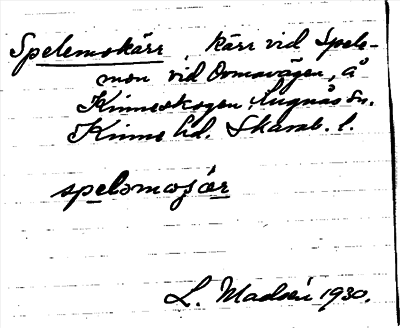 Spelemokärr, Kärr vid Spele-
mon vid Ormavägen, å
Kinneskogen, Lugnås sn.
Kinne hd. Skarab. l.
spelemosɟær
L. Madsén 1930.